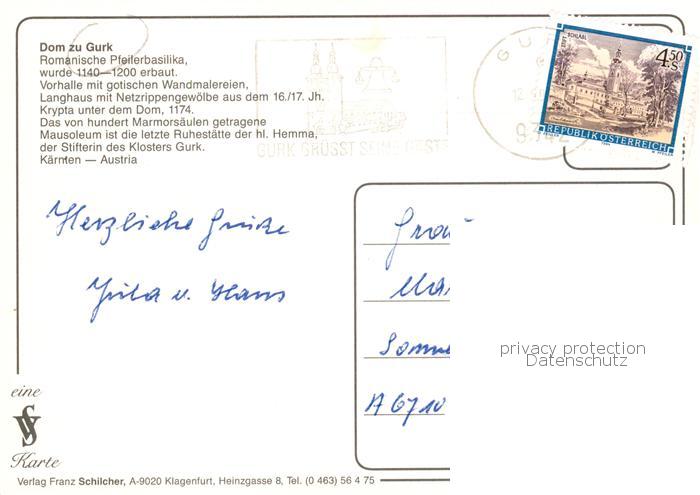 Dom zu Gurk
Romanische Pfeilerbasilika,
wurde 1140—1200 erbaut.
Vorhalle mit gotischen Wandmalereien,
Langhaus mit Netzrippengewölbe aus dem 16./17. Jh.
Krypta unter dem Dom, 1174.
Das von hundert Marmorsäulen getragene
Mausoleum ist die letzte Ruhestätte der hl. Hemma,
der Stifterin des Klosters Gurk.
Kärnten — Austria
GURK GRÜSST SEINE GÄSTE
9342
STIFT SCHLÄGL
4.50 S
REPUBLIK ÖSTERREICH
Herzliche Grüße
Jula u. Hans
Somme
A 6710
privacy protection
Datenschutz
eine
VS
Karte
Verlag Franz Schilcher, A-9020 Klagenfurt, Heinzgasse 8, Tel. (0 463) 56 4 75